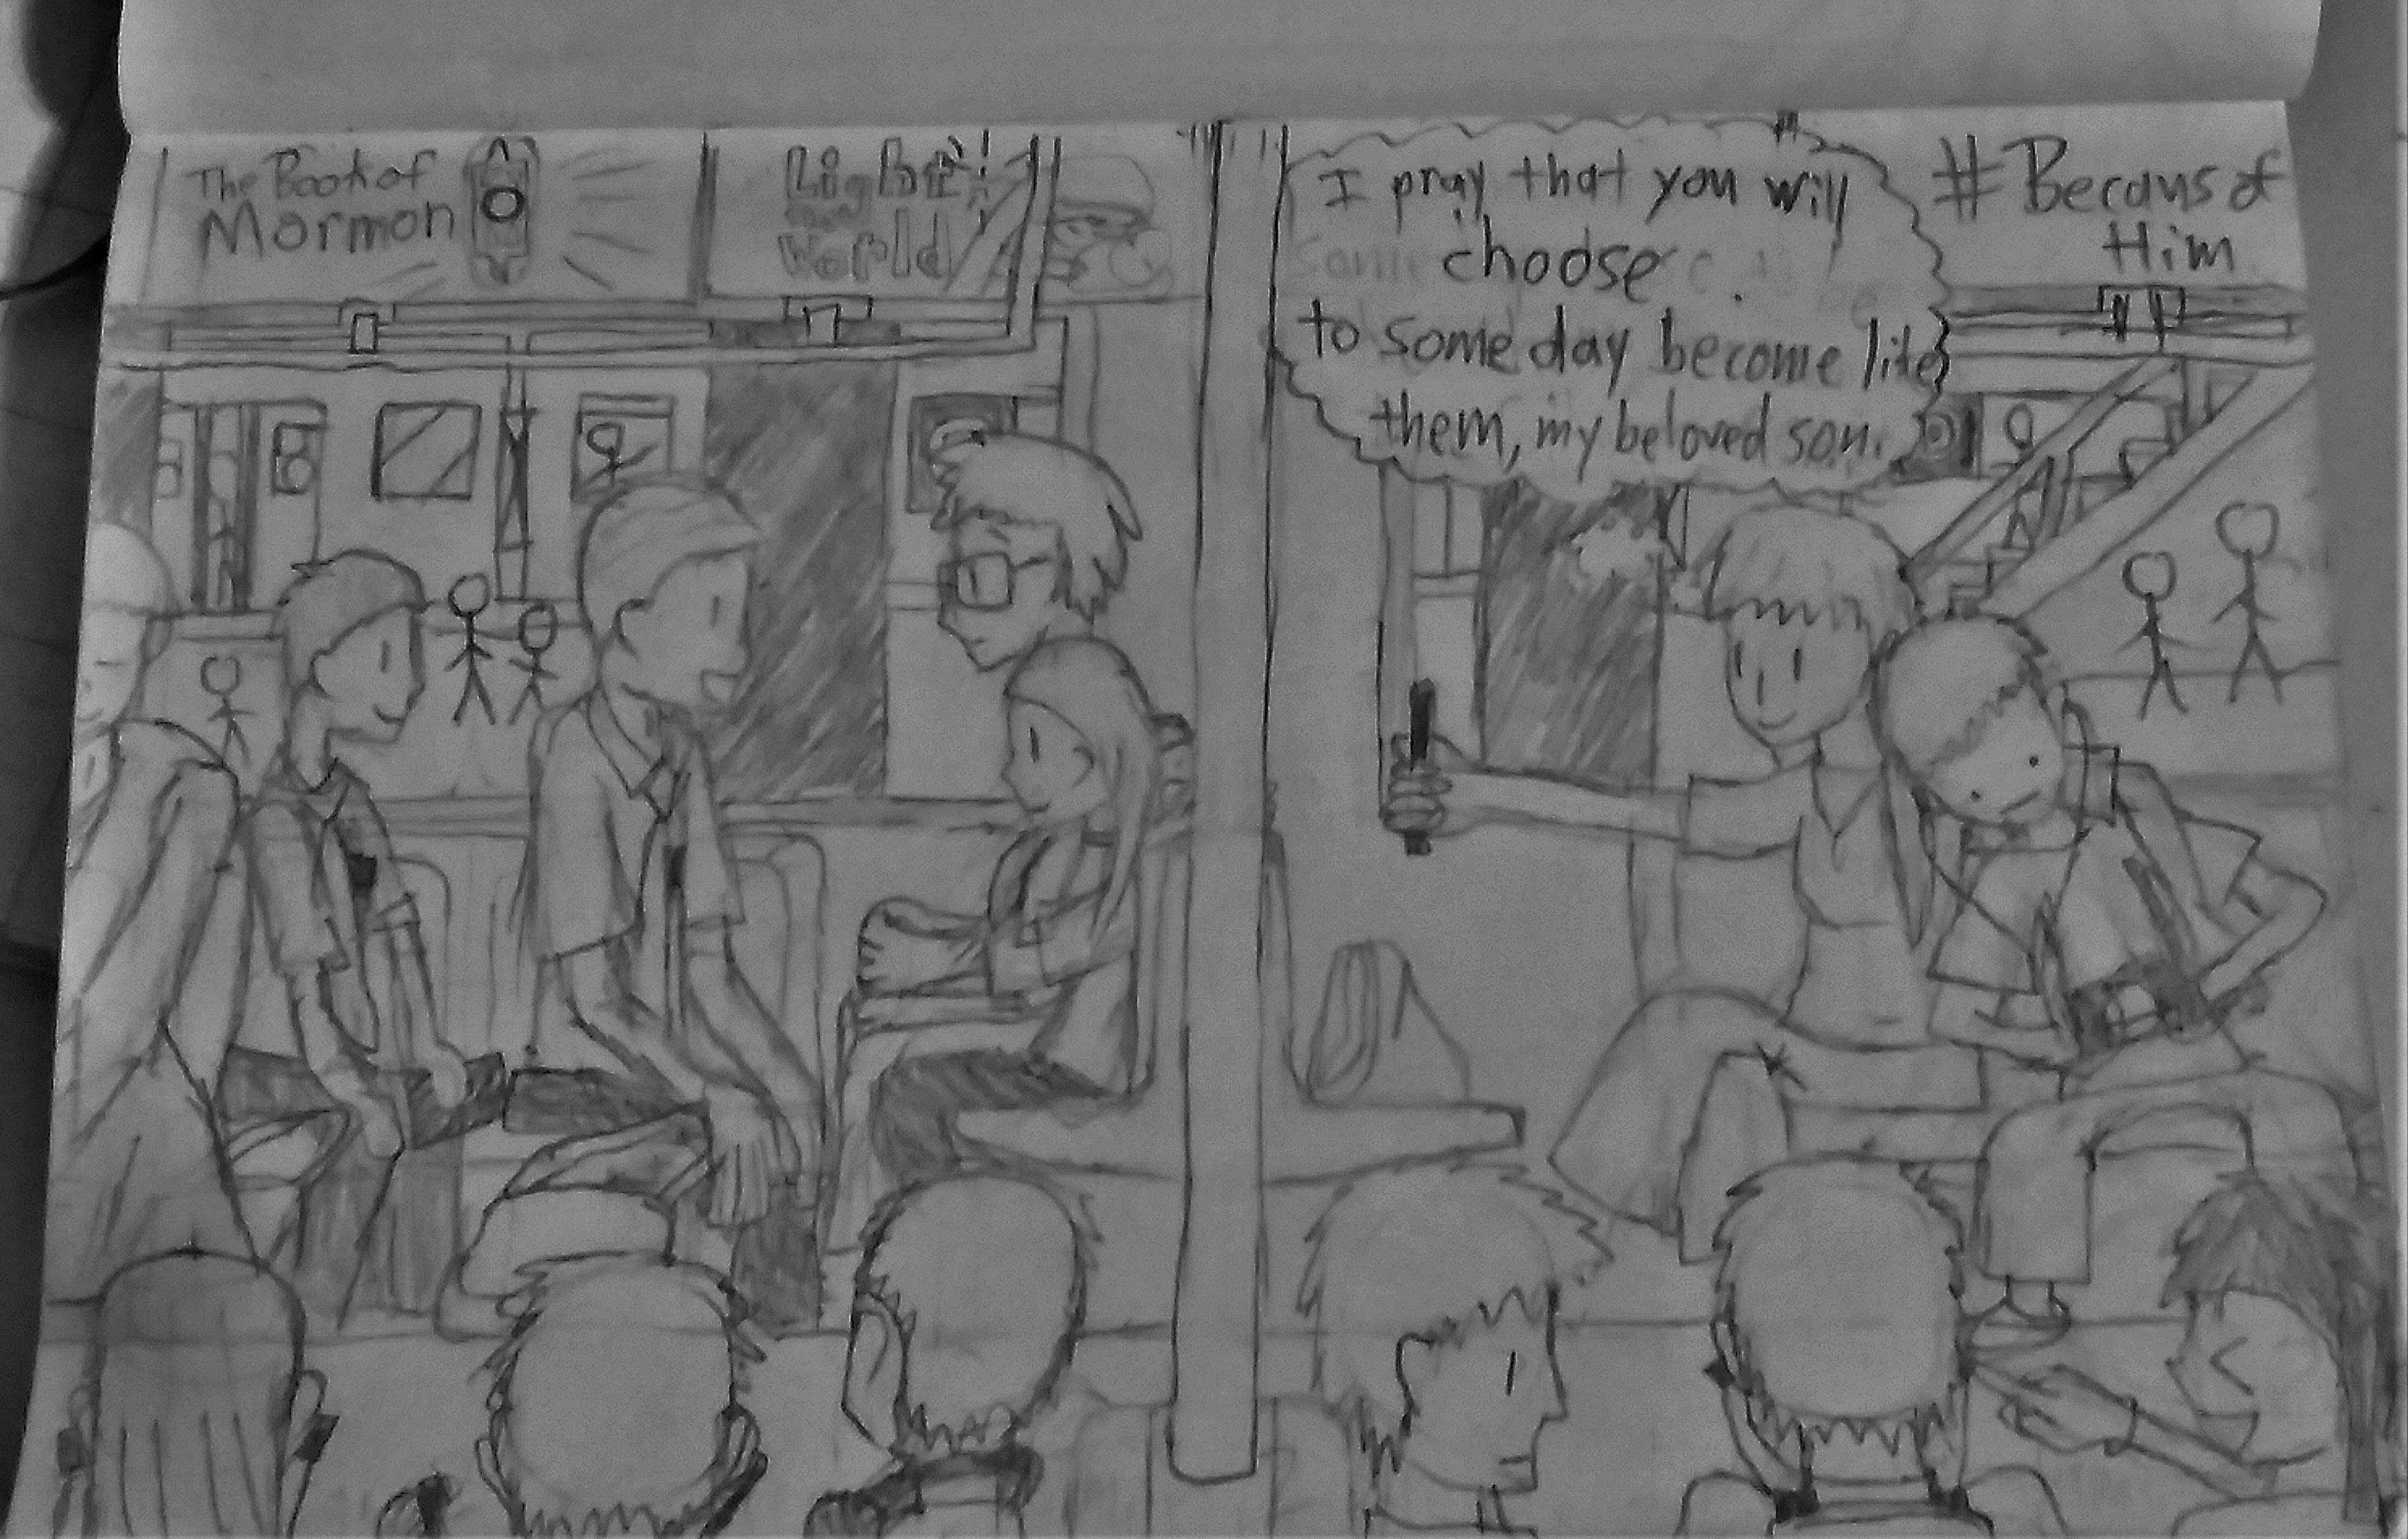 The Book of
Mormon
Light
World
I pray that you will
choose
to some day become like
them, my beloved son.
# Becaus of
Him